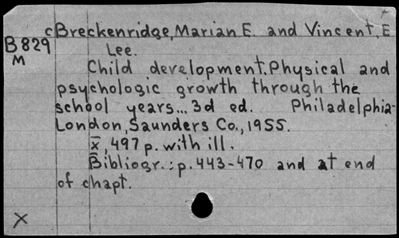 cBreckenridge, Marian E. and Vincent, E
B829 Lee.
M Child development. Physical and
psychologic growth through the
school years... 3d ed. Philadelphia-
London, Saunders Co., 1955.
x̄, 497 p. with ill.
Bibliogr.: p. 443-470 and at end
of chapt.
X